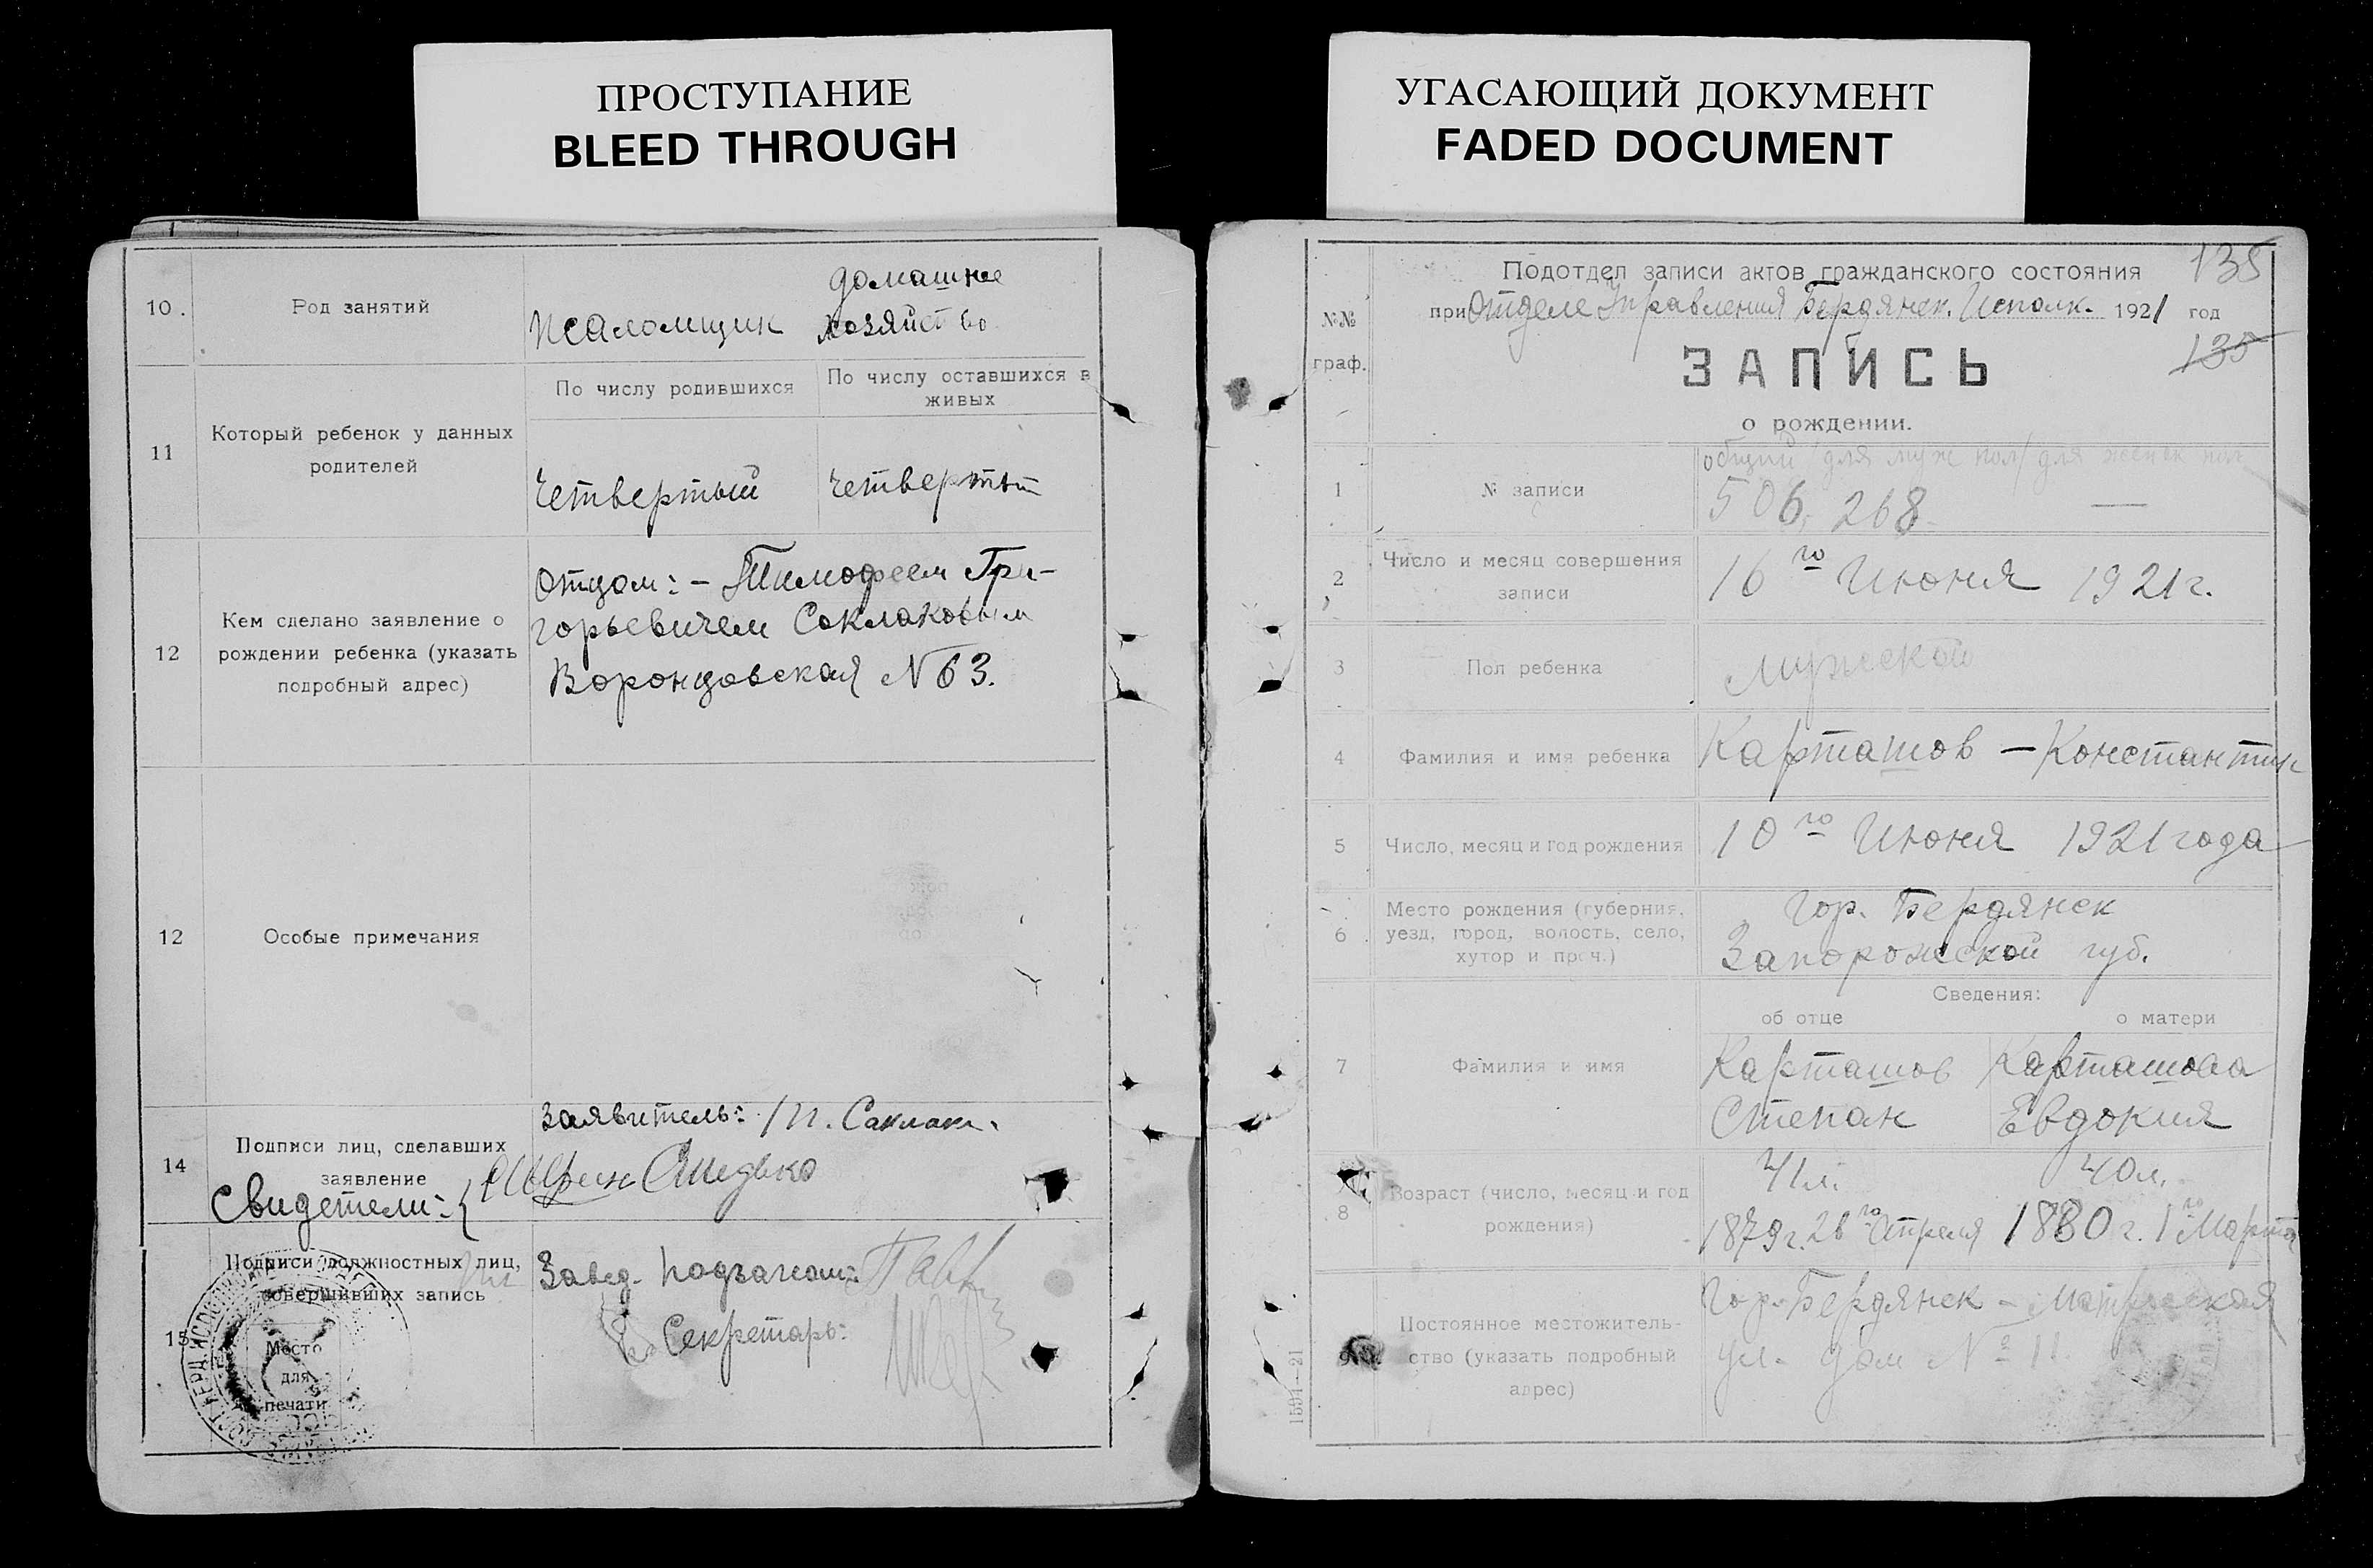 ПРОСТУПАНИЕ
BLEED THROUGH
10.
Род занятий
псаломщик
домашнее
хозяйство
11
Который ребенок у данных
родителей
По числу родившихся
По числу оставшихся в
живых
Четвертый
четвертый
12
Кем сделано заявление о
рождении ребенка (указать
подробный адрес)
Отцом: – Тимофеем Гри-
горьевичем Саклаковым
Воронцовская N 63.
12
Особые примечания
14
Подписи лиц, сделавших
заявление
Свидетели:
Заявитель: Т. Саклак.
15
Подписи должностных лиц,
совершивших запись
Место
для
печати
Завед. подзагсом:
Секретарь:
УГАСАЮЩИЙ ДОКУМЕНТ
FADED DOCUMENT
135
№№
граф.
Подотдел записи актов гражданского состояния
при Отделе Управления Бердянск. Исполк. 1921 год
135
ЗАПИСЬ
о рождении.
1
№ записи
общий / для муж пол / для женск пол
506, 268 —
2
Число и месяц совершения
записи
16го Июня 1921 г.
3
Пол ребенка
мужской
4
Фамилия и имя ребенка
Карташов – Константин
5
Число, месяц и год рождения
10го Июня 1921 года
6
Место рождения (губерния,
уезд, город, волость, село,
хутор и проч.)
Гор. Бердянск
Запорожской губ.
Сведения:
об отце
о матери
7
Фамилия и имя
Карташов
Степан
Карташова
Евдокия
8
Возраст (число, месяц и год
рождения)
41 л.
1879 г. 26го Апреля
40 л.
1880 г. 1го Марта
Постоянное местожитель-
ство (указать подробный
адрес)
Гор. Бердянск –
ул. дом № 11
1591—21